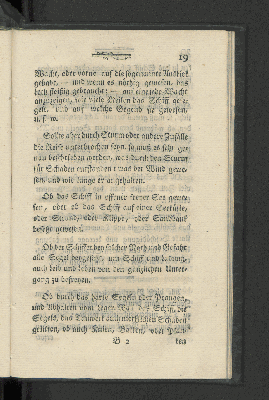 19
Wache, oder vorne auf die sogenannte Auskick
gehabt, — und wenn es nöthig gewesen, das
Loth fleißig gebraucht; — auf eine jede Wache
anzuzeigen, wie viele Meilen das Schiff gese-
gelt, und auf welche Gegend sie gewesen,
u. s. w.
Sollte aber durch Sturm oder andere Zufälle
die Reise unterbrochen seyn, so muß es sehr ge-
nau beschrieben werden, was durch den Sturm
für Schaden entstanden; was der Wind gewe-
sen, und wie lange er angehalten.
Ob das Schiff in offener freyer See gewe-
sen, oder ob das Schiff auf einer Seeküste,
oder Strand, oder Klippe, oder Sandbank
besetzt gewesen.
Ob der Schiffer in solcher Noth und Gefahr
alle Segel beygesetzt, um Schiff und Ladung,
auch Leib und Leben von den gänzlichen Unter-
gang zu befreyen.
Ob durch das harte Segeln oder Prangen,
und Abhalten vom Leger Wall das Schiff, die
Segels, das Tauwerk auch ersichtlichen Schaden
gelitten, ob auch Kisten, Balken, oder Plan-
B 2
ken